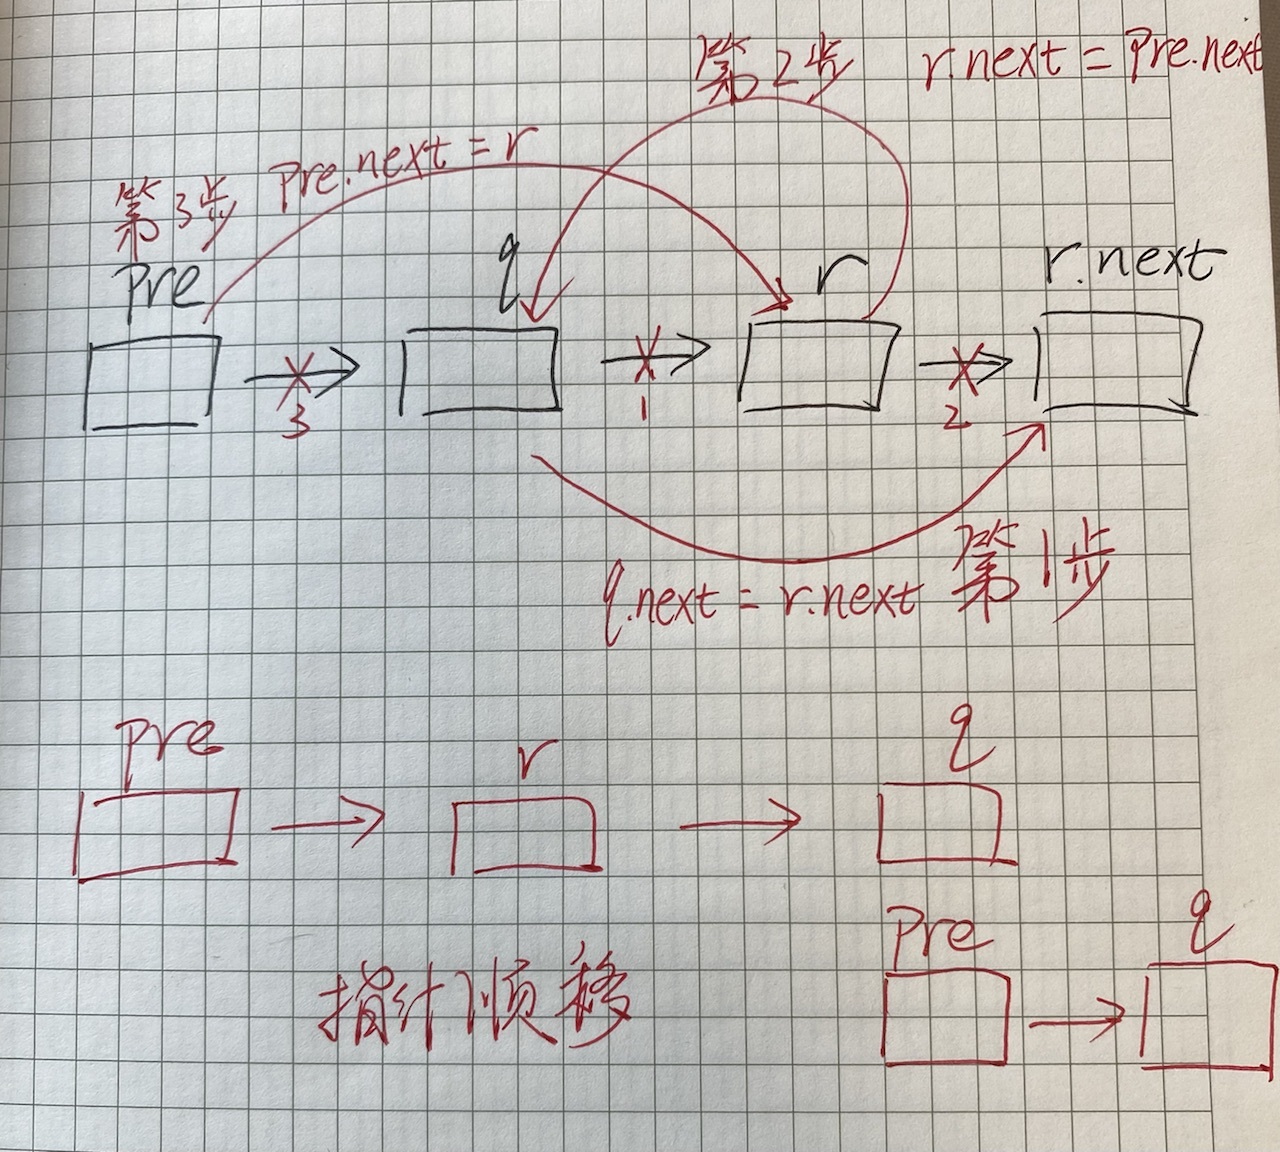 第2步 r.next = Pre.next
第3步 Pre.next = r
Pre q r r.next
3 1 2
q.next = r.next 第1步
pre r q
Pre q
指针顺移